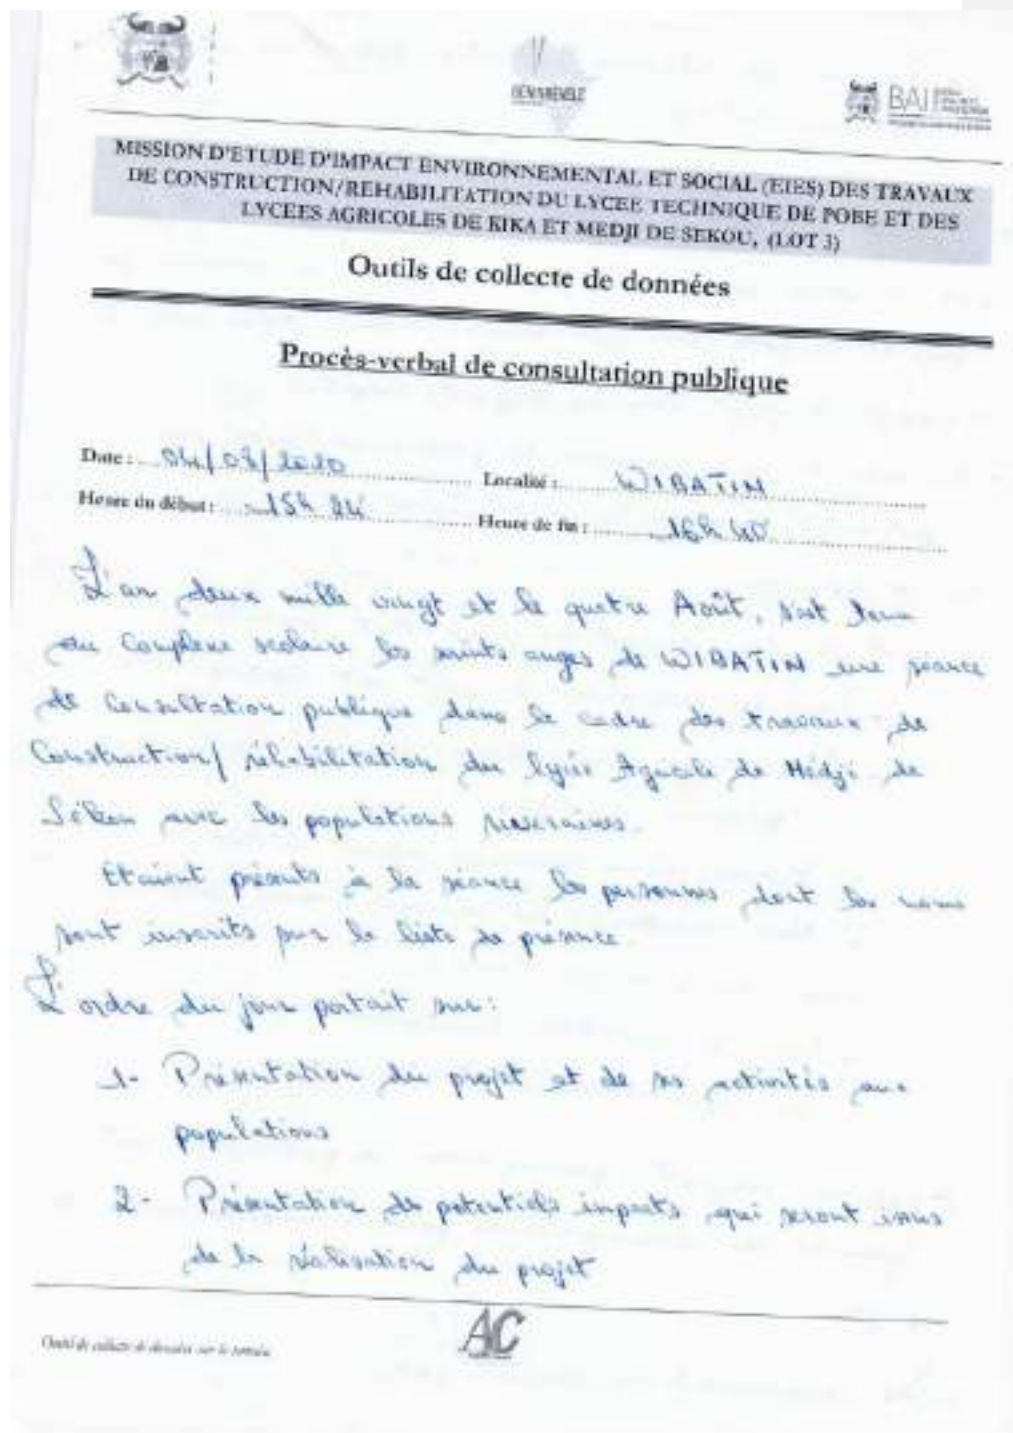 BENIN REVELE
BAI
MISSION D'ETUDE D'IMPACT ENVIRONNEMENTAL ET SOCIAL (EIES) DES TRAVAUX
DE CONSTRUCTION/REHABILITATION DU LYCEE TECHNIQUE DE POBE ET DES
LYCEES AGRICOLES DE KIKA ET MEDJI DE SEKOU, (LOT 3)
Outils de collecte de données
Procès-verbal de consultation publique
Date : 04/08/2020 Localité : WIBATIN
Heure du début : 15h 24 Heure de fin : 16h 40
L'an deux mille vingt et le quatre Août, s'est tenu
au Complexe scolaire les saints anges de WIBATIN une séance
de Consultation publique dans le cadre des travaux de
Construction/ réhabilitation du lycée Agricole de Médji de
Sékou avec les populations riveraines.
Etaient présents à la séance les personnes dont les noms
sont inscrits sur la liste de présence
L'ordre du jour portait sur :
1- Présentation du projet et de ses activités aux
populations
2- Présentation de potentiels impacts qui seront issus
de la réalisation du projet
Outil de collecte de données sur le terrain
AC